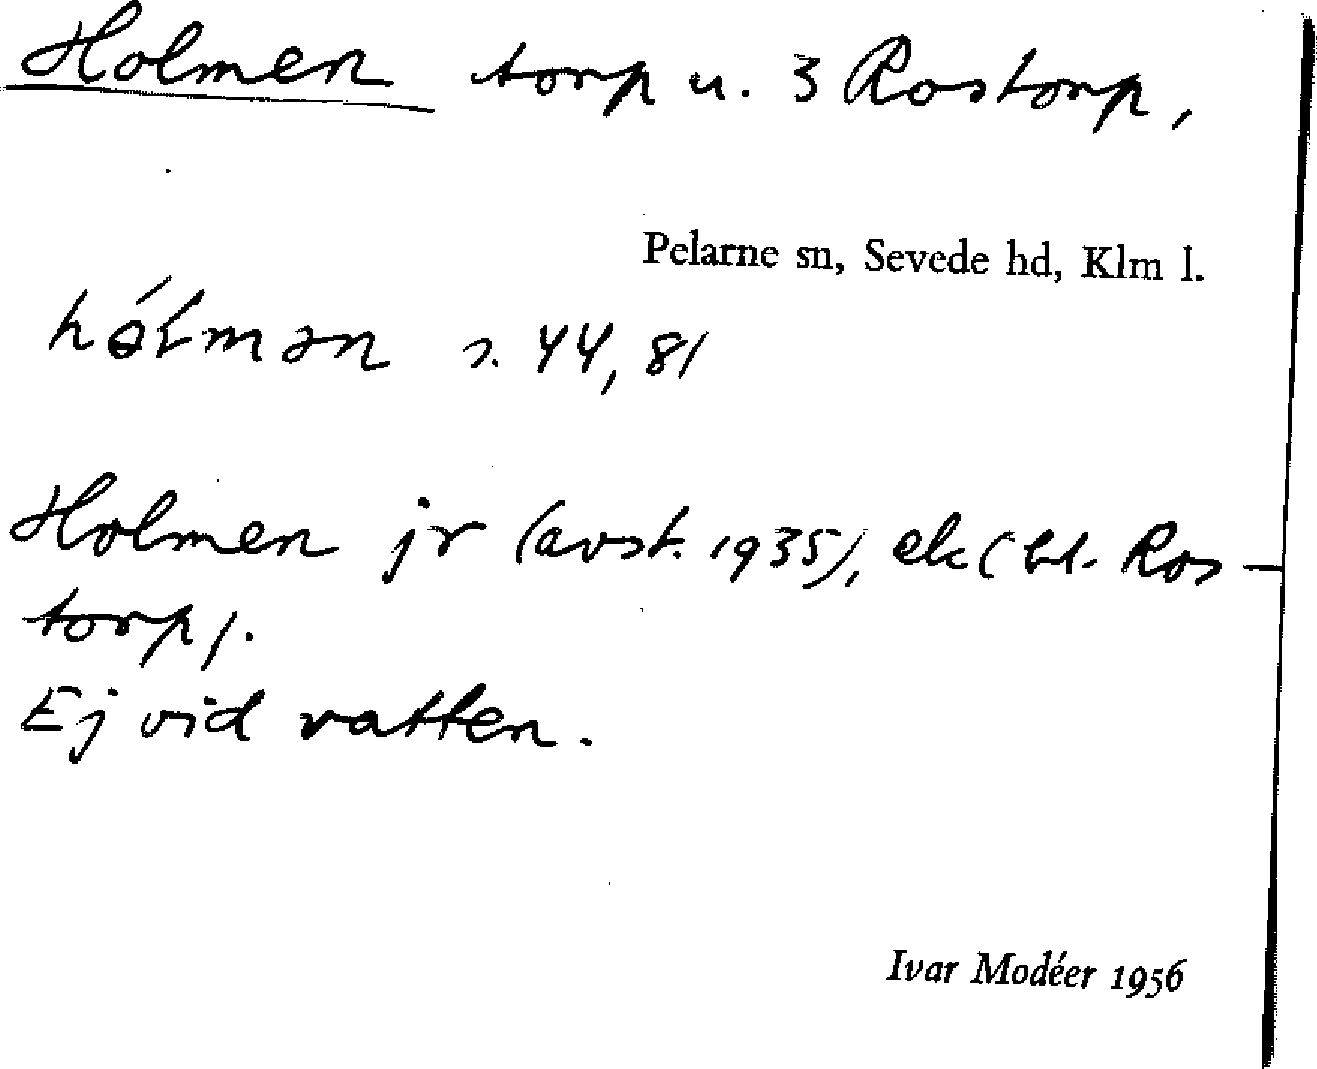 Holmen torp u. 3 Rostorp,
Pelarne sn, Sevede hd, Klm l.
s. 44, 81
Holmen jr (avst. 1935), ek (bl. Ros-
torp).
Ej vid vatten.
Ivar Modéer 1956